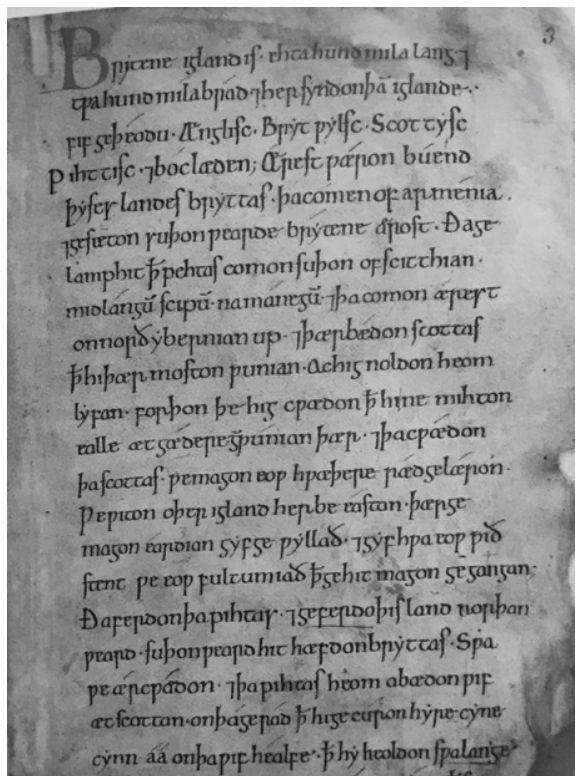 3
Brytene igland is ehta hund mila lang ⁊
twa hund mila brad ⁊ her syndon þā iglande
fif geþeodu · Ænglisc · Brytwylsc · Scottysc
Pihttisc · ⁊ boclæden; Ærest wæron búend
þyses landes bryttas · þa cómen of armenia ·
⁊ gesæton suþonwearde brytene ærost · Ða ge
lamp hit þ̄ pehtas comon suþon of scitthian ·
mid langū scipū · na manegū · ⁊ þa comon ærest
on norð ybernian up · ⁊ þær bédon scottas
þ̄ hi þær moston wunian · Ac hig noldon heom
lyfan · forþon þe hig cwædon þ̄ hi ne mihton
ealle ætgædere ge wunian þær · ⁊ þa cwædon
þa scottas · we magon eow hwæþere ræd gelæron ·
We witon oþer igland her be eastan · þær ge
magon eardian gyf ge wyllað · ⁊ gyf hwa eow wið
stent we eow fultumiað þ̄ ge hit magon gegangan ·
Ða ferdon þa pihtas · ⁊ geferdo þis land norþan
weard · suþonweard hit hæfdon bryttas · Swa
we ær cwædon · ⁊ þa pihtas heom abædon wif
æt scottan · on þa gerad þ̄ hi gecuron hyre cyne
cynn áá on þa wif healfe · þ̄ hy heoldon swa lange